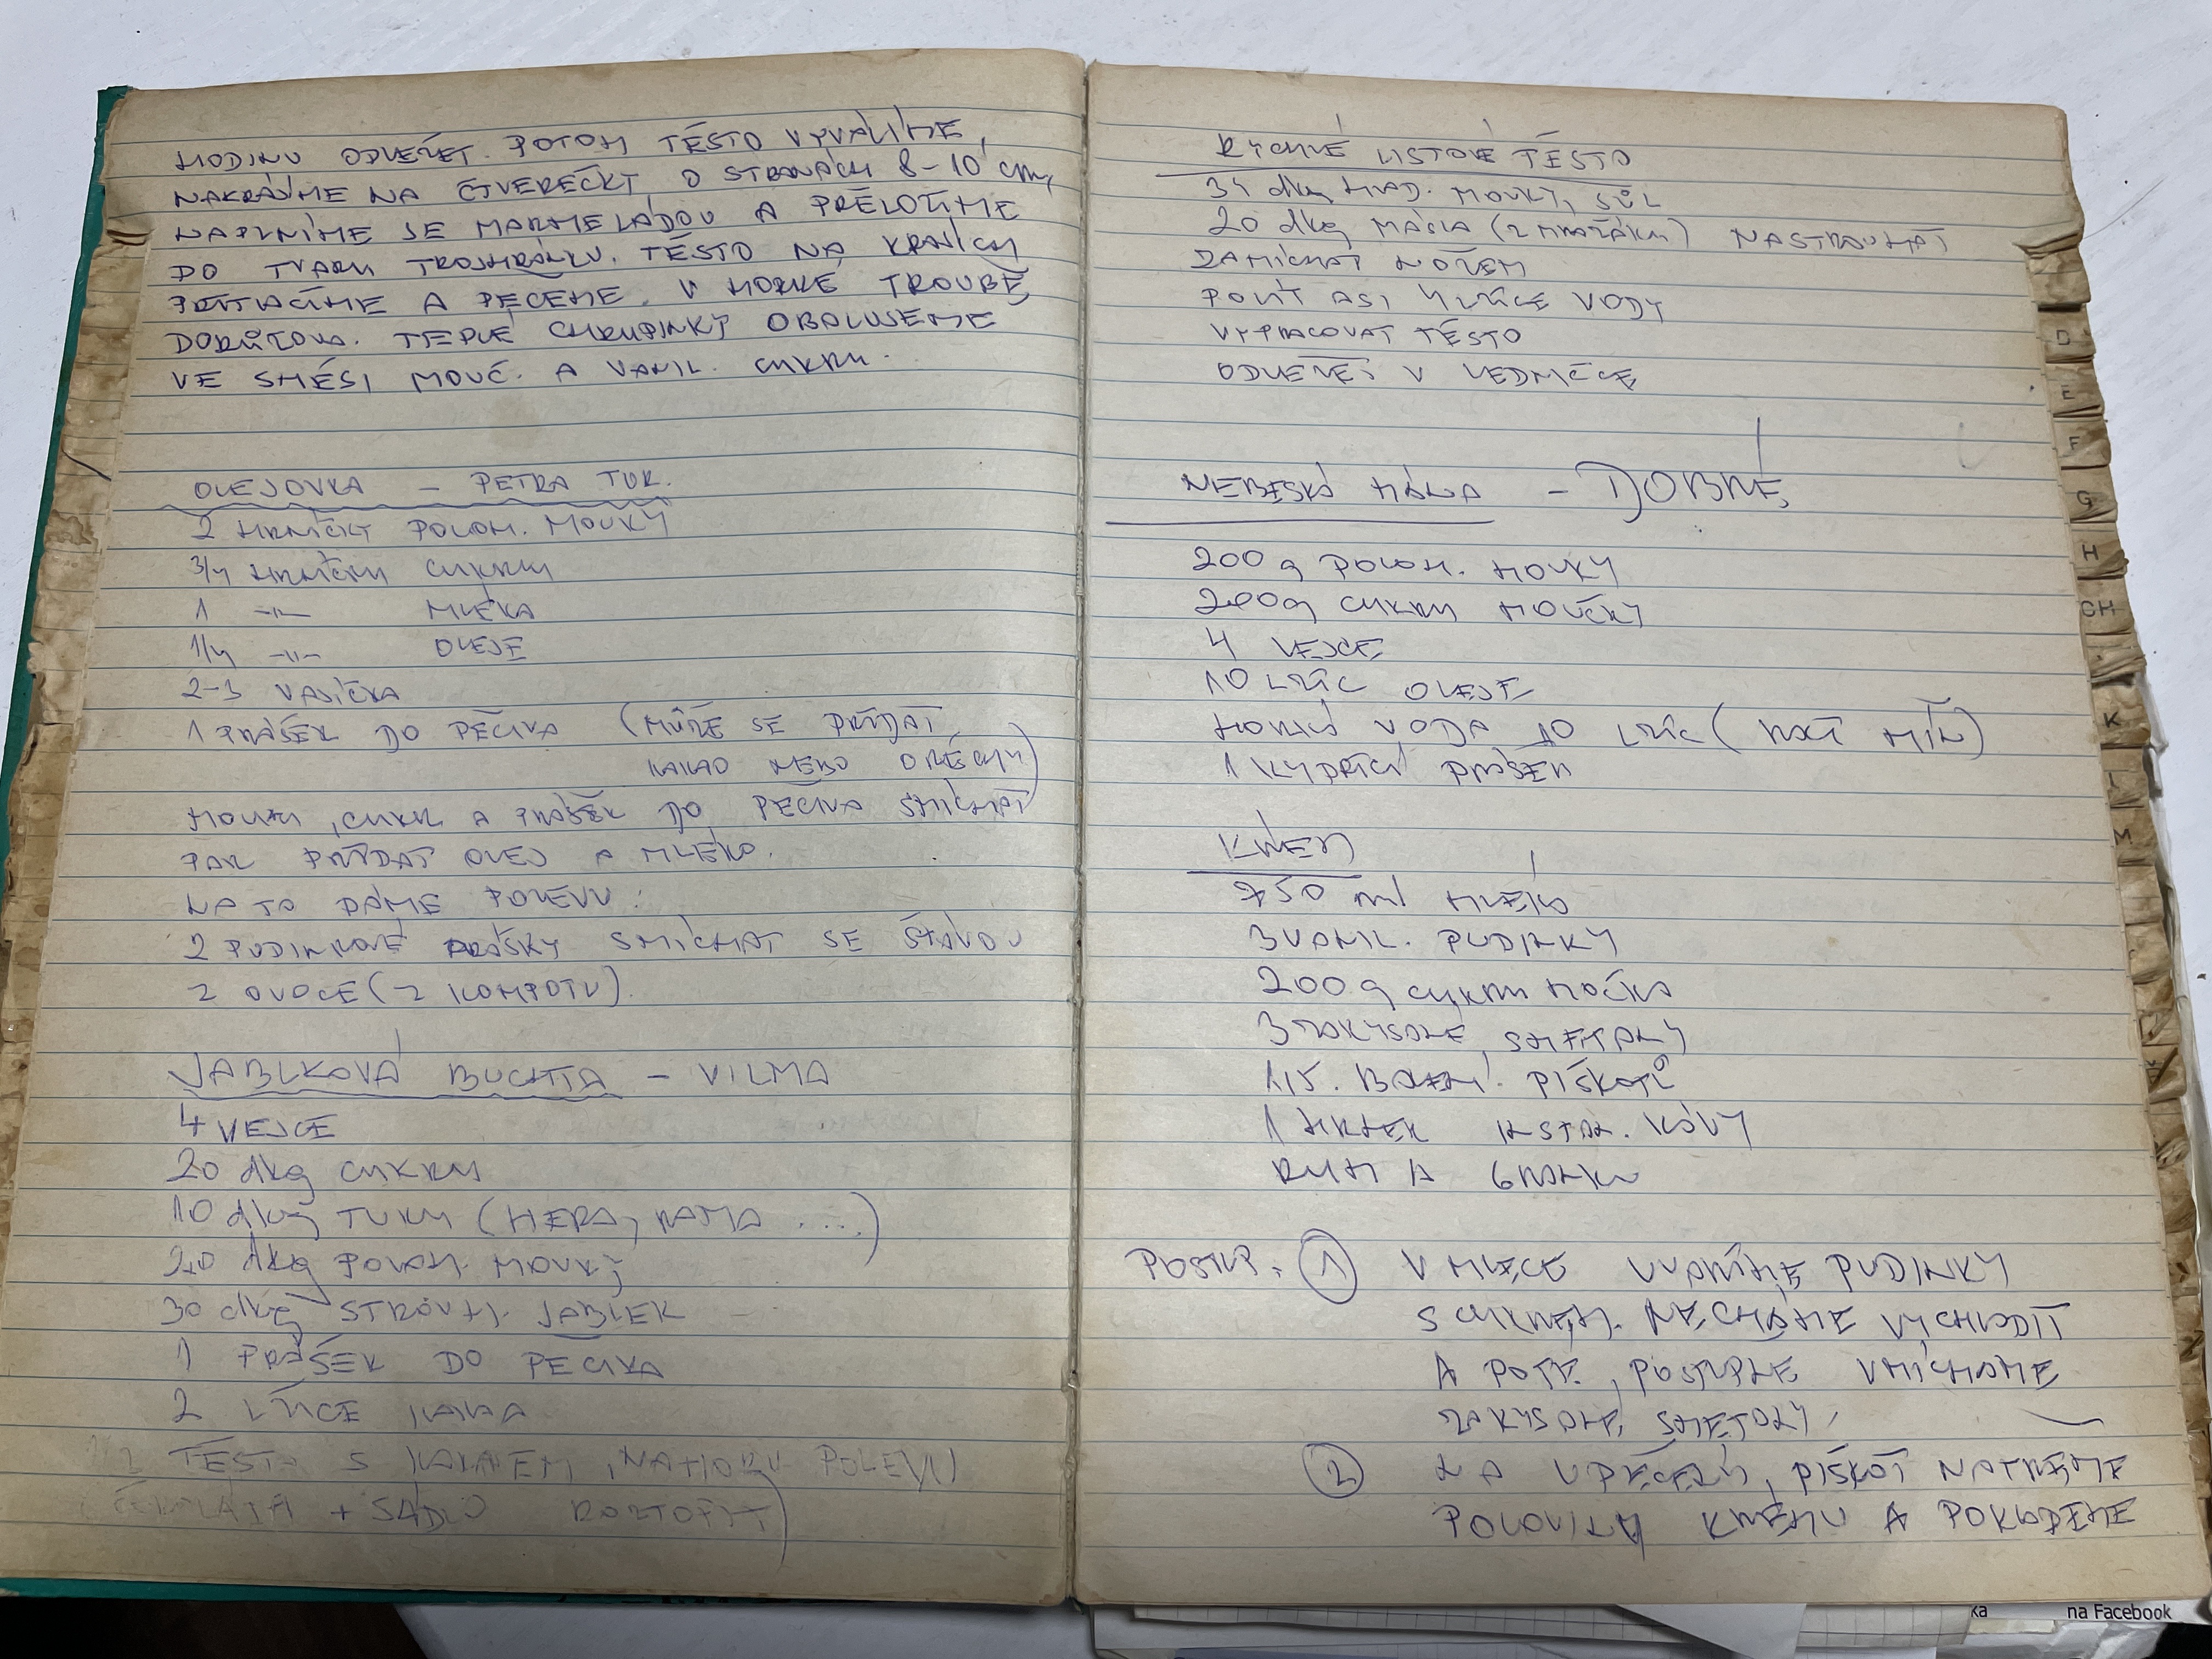 HODINU ODLEŽET. POTOM TĚSTO VYVÁLÍME,
NAKRÁJÍME NA ČTVEREČKY O STRANÁCH 8-10 cm,
NAPLNÍME JE MARMELÁDOU A PŘELOŽÍME
DO TVARU TROJHRÁNKU. TĚSTO NA KRAJÍCH
PŘITLAČÍME A PEČEME V HORKÉ TROUBĚ
DORŮŽOVA. TEPLÉ CHRUPINKY OBALUJEME
VE SMĚSI MOUČ. A VANIL. CUKRU.
OLEJOVKA - PETRA TUR.
2 HRNÍČKY POLOH. MOUKY
3/4 HRNÍČKU CUKRU
1 -"- MLÉKA
1/4 -"- OLEJE
2-3 VAJÍČKA
1 PRÁŠEK DO PEČIVA (MŮŽE SE PŘIDAT
KAKAO NEBO OŘECHY)
MOUKU, CUKR A PRÁŠEK DO PEČIVA SMÍCHAT
PAK PŘIDAT OLEJ A MLÉKO.
NA TO DÁME POLEVU:
2 PUDINKOVÉ PRÁŠKY SMÍCHAT SE ŠŤÁVOU
Z OVOCE (Z KOMPOTU).
JABLKOVÁ BUCHTA - VILMA
4 VEJCE
20 dkg CUKRU
10 dkg TUKU (HERA, RAMA ...)
20 dkg POLOH. MOUKY
30 dkg STROUH. JABLEK
1 PRÁŠEK DO PEČIVA
2 LŽÍCE KAKAA
TĚSTO S KAKAEM, NAHORU POLEVU
ČOKOLÁDA + SÁDLO ROZTOPIT)
RYCHLÉ LISTOVÉ TĚSTO
34 dkg HLAD. MOUKY, SŮL
20 dkg MÁSLA (Z MRAZÁKU) NASTROUHAT
ZAMÍCHAT NOŽEM
POLÍT ASI 4 LŽÍCE VODY
VYPRACOVAT TĚSTO
ODLEŽET V LEDNIČCE
NEBESKÁ MÁNA - DOBRÉ
200 g POLOH. MOUKY
200g CUKRU MOUČKY
4 VEJCE
10 LŽÍC OLEJE
HORKÁ VODA 10 LŽÍC ( MÍŇ)
1 KYPŘÍCÍ PRÁŠEK
KRÉM
750 ml MLÉKO
3 VANIL. PUDINKY
200 g CUKRU MOČKA
3 ZAKYSANÉ SMETANY
1,5. BALENÍ PIŠKOTŮ
1 HRNEK INSTAN. KÁVY
RUM A GRANKO
POSTUP: 1 V MLÉCE UVAŘÍME PUDINKY
S CUKREM. NECHÁME VYCHLADIT
A POTÉ POSTUPNĚ VMÍCHÁME
ZAKYSANÉ SMETANY.
2 NA UPEČENÝ PIŠKOT NATŘEME
POLOVINU KRÉMU A POKLADEME
D
E
F
G
H
CH
K
L
M
na Facebook